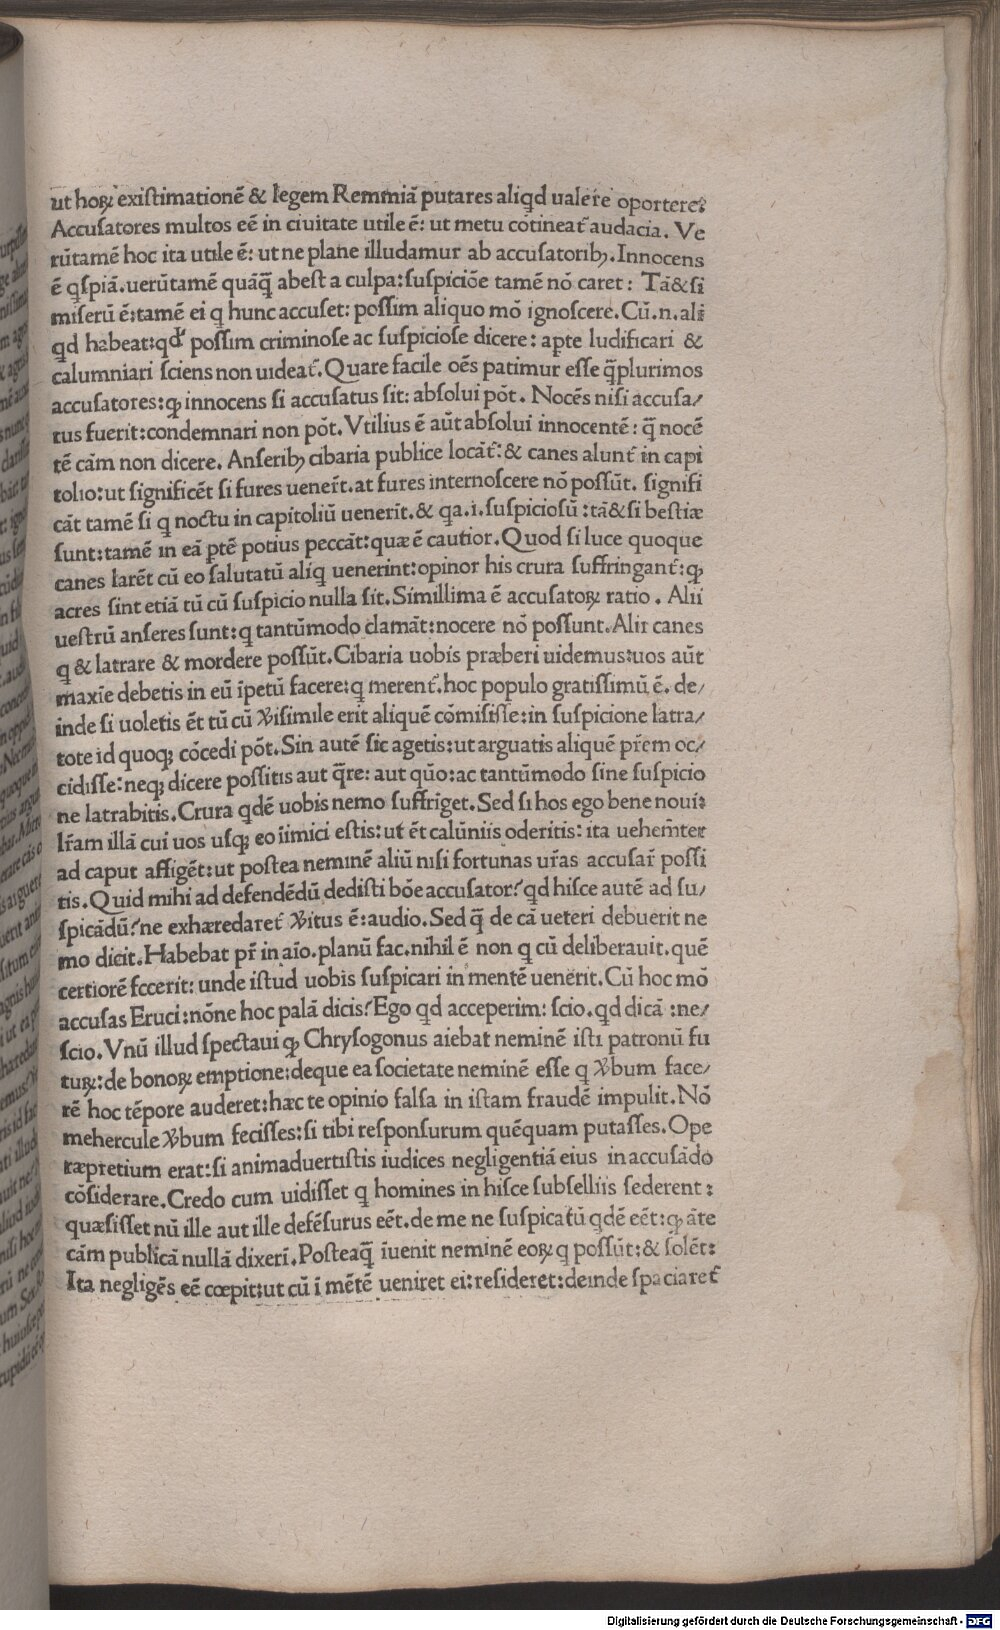 ut hoꝝ existimationē & legem Remmiā putares aliqd ualere oportere?
Accusatores multos eē in ciuitate utile ē: ut metu cōtineat᷑ audacia. Ve
rūtamē hoc ita utile ē: ut ne plane illudamur ab accusatorib₉. Innocens
ē qspiā. uerūtamē quāq̄ abest a culpa: suspiciōe tamē nō caret: Tā&si
miserū ē: tamē ei q hunc accuset: possim aliquo mō ignoscere. Cū.n. ali
qd habeat: qd possim criminose ac suspiciose dicere: apte ludificari &
calumniari sciens non uideat᷑. Quare facile oēs patimur esse q̄plurimos
accusatores: ꝙ innocens si accusatus sit: absolui pōt. Nocēs nisi accusa/
tus fuerit: condemnari non pōt. Vtilius ē aūt absolui innocentē: q̄ nocē
tē cām non dicere. Anserib₉ cibaria publice locāt᷑: & canes alunt᷑ in capi
tolio: ut significēt si fures uener̄t. at fures internoscere nō possūt. signifi
cāt tamē si q noctu in capitoliū uenerīt. & qa.i. suspiciosū: tā&si bestiæ
sunt: tamē in eā ptē potius peccāt: quæ ē cautior. Quod si luce quoque
canes latrēt cū eo salutatū aliq uenerint: opinor his crura suffringant᷑: ꝙ
acres sint etiā tū cū suspicio nulla sit. Simillima ē accusatoꝝ ratio. Alii
uestrū anseres sunt: q tantūmodo clamāt: nocere nō possunt. Alii canes
q & latrare & mordere possūt. Cibaria uobis præberi uidemus: uos aūt
maxīe debetis in eū īpetū facere: q merent᷑. hoc populo gratissimū ē. de/
inde si uoletis ēt tū cū ꝟisimile erit aliquē cōmisisse: in suspicione latra/
tote id quoq; cōcedi pōt. Sin autē sic agetis: ut arguatis aliquē pr̄em oc/
cidisse: neq; dicere possitis aut q̄re: aut quō: ac tantūmodo sine suspicio
ne latrabitis. Crura qdē uobis nemo suffrīget. Sed si hos ego bene noui:
lr̄am illā cui uos usq; eo iīmici estis: ut ēt calūniis oderitis: ita uehem̄ter
ad caput affigēt: ut postea neminē aliū nisi fortunas ur̄as accusar̄ possi
tis. Quid mihi ad defendēdū dedisti bōe accusator? qd hisce autē ad su/
spicādū? ne exhæredaret᷑ ꝟitus ē: audio. Sed q̄ de cā ueteri debuerit ne
mo dicit. Habebat pr̄ in aīo. planū fac. nihil ē non q cū deliberauit. quē
certiorē fecerit: unde istud uobis suspicari in mentē uenerit. Cū hoc mō
accusas Eruci: nōne hoc palā dicis? Ego qd acceperim: scio. qd dicā: ne/
scio. Vnū illud spectaui ꝙ Chrysogonus aiebat neminē isti patronū fu
tuꝝ: de bonoꝝ emptione: deque ea societate neminē esse q ꝟbum face/
rē hoc tēpore auderet: hæc te opinio falsa in istam fraudē impulit. Nō
mehercule ꝟbum fecisses: si tibi responsurum quēquam putasses. Ope
ræpretium erat: si animaduertistis iudices negligentiā eius in accusādo
cōsiderare. Credo cum uidisset q homines in hisce subselliis sederent:
quæsisset nū ille aut ille defēsurus eēt. de me ne suspicatū qdē eēt: ꝙ āte
cām publicā nullā dixerī. Posteaq̄ īuenit neminē eoꝝ q possūt: & solēt:
Ita negligēs eē cœpit: ut cū ī mētē ueniret ei: resideret: deinde spaciaret᷑
Digitalisierung gefördert durch die Deutsche Forschungsgemeinschaft - DFG